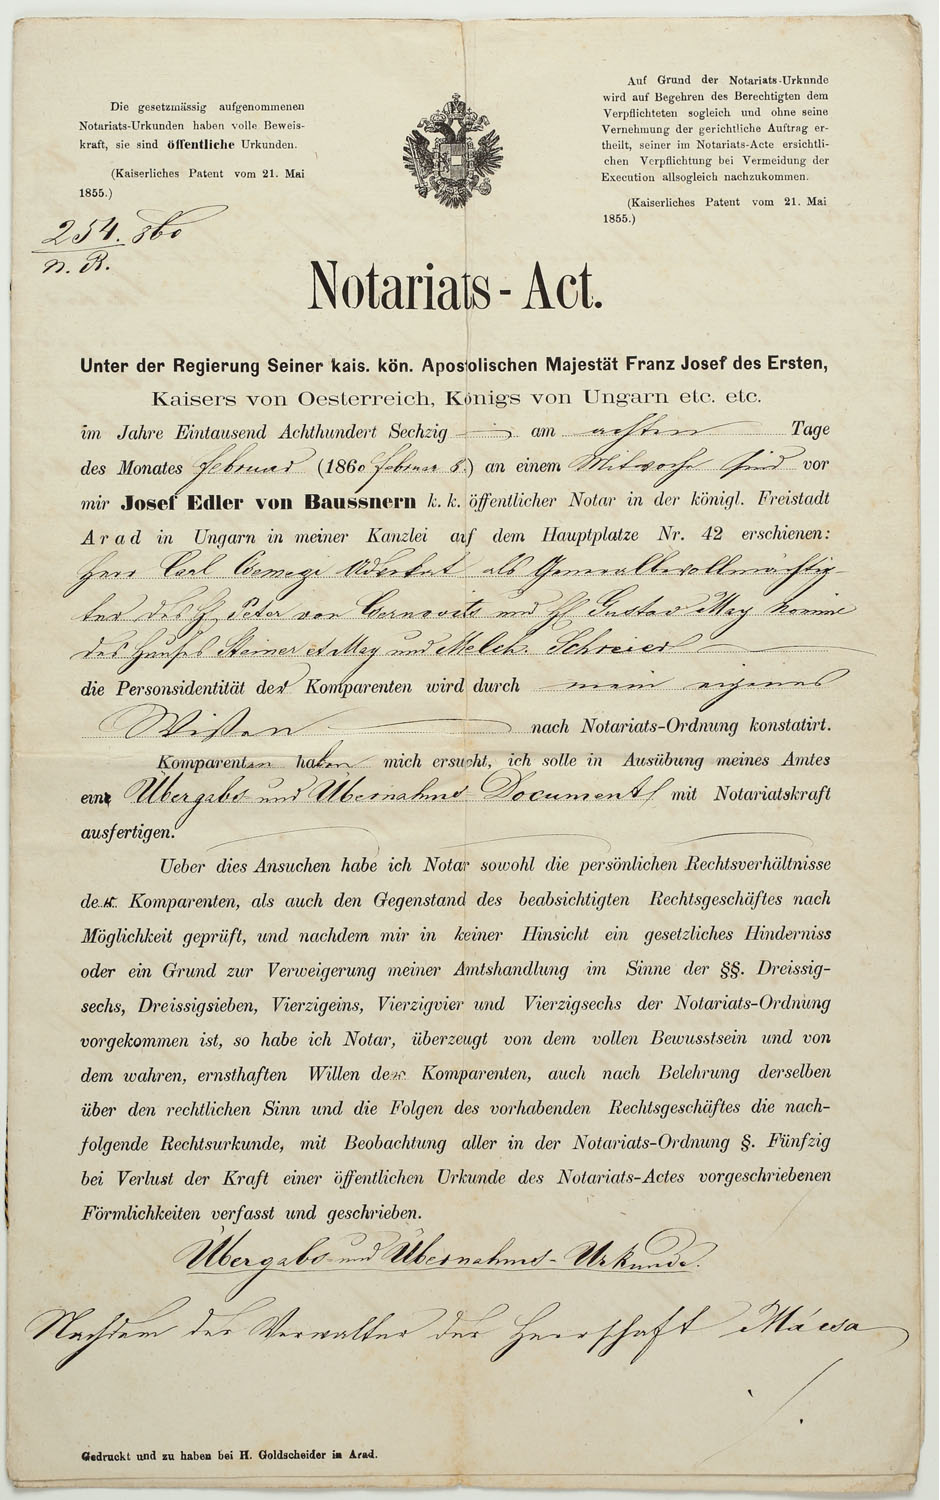 Die gesetzmässig aufgenommenen
Notariats-Urkunden haben volle Beweis-
kraft, sie sind öffentliche Urkunden.
(Kaiserliches Patent vom 21. Mai
1855.)
Auf Grund der Notariats-Urkunde
wird auf Begehren des Berechtigten dem
Verpflichteten sogleich und ohne seine
Vernehmung der gerichtliche Auftrag er-
theilt, seiner im Notariats-Acte ersichtli-
chen Verpflichtung bei Vermeidung der
Execution allsogleich nachzukommen.
(Kaiserliches Patent vom 21. Mai
1855.)
254. 860
n. R.
Notariats-Act.
Unter der Regierung Seiner kais. kön. Apostolischen Majestät Franz Josef des Ersten,
Kaisers von Oesterreich, Königs von Ungarn etc. etc.
im Jahre Eintausend Achthundert Sechzig am achten Tage
des Monates Februar (1860 Februar 8.) an einem Mitwoche sind vor
mir Josef Edler von Baussnern k. k. öffentlicher Notar in der königl. Freistadt
Arad in Ungarn in meiner Kanzlei auf dem Hauptplatze Nr. 42 erschienen:
Herr Carl Advokat als Generalbevollmächtig-
ter des H. Peter von Cernovits und H. Gustav May nomine
des Hauses Steiner et May und Melch. Schreier
die Personsidentität der Komparenten wird durch mein eigenes
Wissen nach Notariats-Ordnung konstatirt.
Komparenten haben mich ersucht, ich solle in Ausübung meines Amtes
ein Übergabs und Übernahms Document mit Notariatskraft
ausfertigen.
Ueber dies Ansuchen habe ich Notar sowohl die persönlichen Rechtsverhältnisse
der Komparenten, als auch den Gegenstand des beabsichtigten Rechtsgeschäftes nach
Möglichkeit geprüft, und nachdem mir in keiner Hinsicht ein gesetzliches Hinderniss
oder ein Grund zur Verweigerung meiner Amtshandlung im Sinne der §§. Dreissig-
sechs, Dreissigsieben, Vierzigeins, Vierzigvier und Vierzigsechs der Notariats-Ordnung
vorgekommen ist, so habe ich Notar, überzeugt von dem vollen Bewusstsein und von
dem wahren, ernsthaften Willen der Komparenten, auch nach Belehrung derselben
über den rechtlichen Sinn und die Folgen des vorhabenden Rechtsgeschäftes die nach-
folgende Rechtsurkunde, mit Beobachtung aller in der Notariats-Ordnung §. Fünfzig
bei Verlust der Kraft einer öffentlichen Urkunde des Notariats-Actes vorgeschriebenen
Förmlichkeiten verfasst und geschrieben.
Übergabs- und Übernahms-Urkunde.
Nachdem der Verwalter der Herrschaft Mácsa
Gedruckt und zu haben bei H. Goldscheider in Arad.